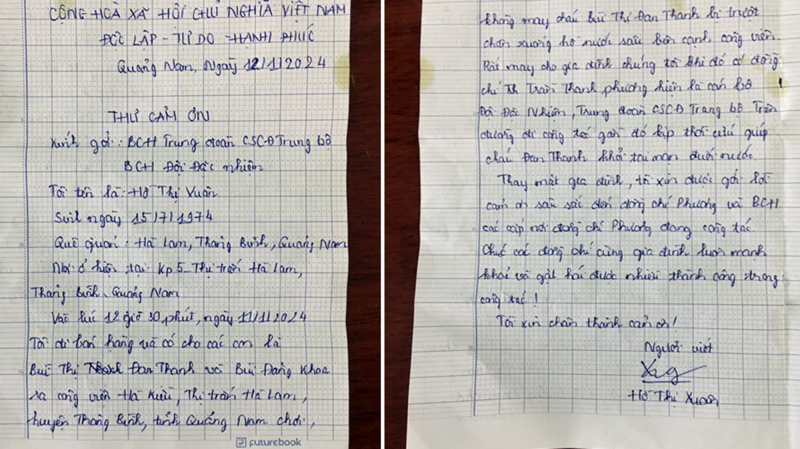 CỘNG HOÀ XÃ HỘI CHỦ NGHĨA VIỆT NAM
ĐỘC LẬP - TỰ DO - HẠNH PHÚC
Quảng Nam, Ngày 12/1/2024
THƯ CẢM ƠN
Kính gởi: BCH Trung đoàn CSCĐ Trung bộ
BCH Đội Đặc nhiệm
Tôi tên là: Hồ Thị Xuân
Sinh ngày 15/7/1974
Quê quán: Hà Lam, Thăng Bình, Quảng Nam
Nơi ở hiện tại Kp5 Thị trấn Hà Lam,
Thăng Bình - Quảng Nam
Vào lúc 12 giờ 30 phút, ngày 11/1/2024
Tôi đi bán hàng và có cho các con là
Bùi Thị Đan Thanh và Bùi Đăng Khoa
ra công viên Hà Kiều, Thị trấn Hà Lam,
huyện Thăng Bình, tỉnh Quảng Nam chơi,
futurebook
không may cháu Bùi Thị Đan Thanh bị trượt
chân xuống hồ nước sâu bên cạnh công viên.
Rất may cho gia đình chúng tôi khi đó có đồng
chí Th Trần Thanh Phương hiện là cán bộ
Đội Đặc Nhiệm, Trung đoàn CSCĐ Trung bộ Trên
đường đi công tác gần đó kịp thời cứu giúp
cháu Đan Thanh khỏi tai nạn đuối nước.
Thay mặt gia đình, tôi xin được gởi lời
cảm ơn sâu sắc đến đồng chí Phương và BCH
các cấp nơi đồng chí Phương đang công tác.
Chúc các đồng chí cùng gia đình luôn mạnh
khoẻ và gặt hái được nhiều thành công trong
công tác!
Tôi xin chân thành cảm ơn!
Người viết
Hồ Thị Xuân